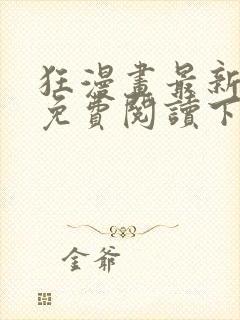 狂漫畫最新
免費閱讀下
金爺